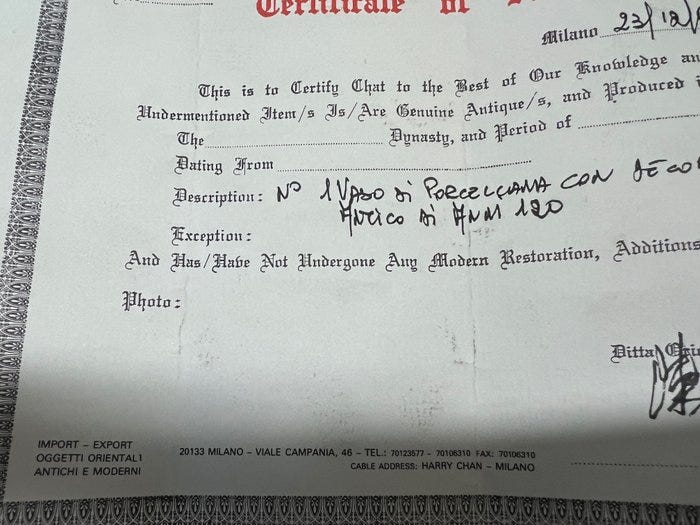 Certificate of
Milano 23/12/
This is to Certify Chat to the Best of Our Knowledge
Undermentioned Item/s Is/Are Genuine Antique/s, and Produced
The Dynasty, and Period of
Dating From
Description: N° 1 VASO DI PORCELLANA CON
ANTICO DI ANNI 120
Exception:
And Has/Have Not Undergone Any Modern Restoration, Additions
Photo:
Ditta
陳
IMPORT – EXPORT
OGGETTI ORIENTALI
ANTICHI E MODERNI
20133 MILANO – VIALE CAMPANIA, 46 – TEL.: 70123577 - 70106310 FAX: 70106310
CABLE ADDRESS: HARRY CHAN – MILANO